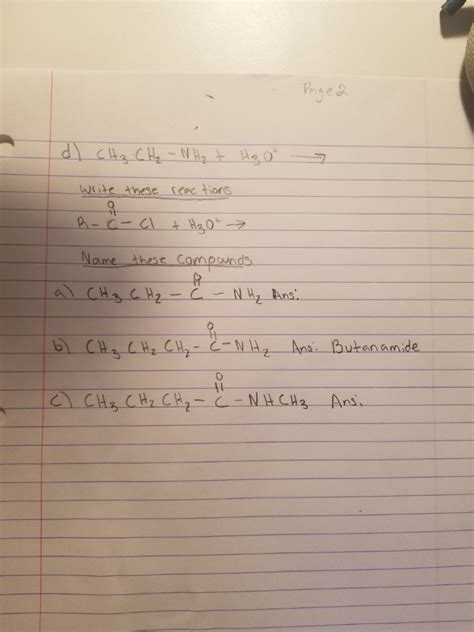 Page 2
d) CH3 CH2 - NH2 + H3O+ →
Write these reactions
O
R - C - Cl + H3O+ →
Name these compounds
O
a) CH3 CH2 - C - NH2 Ans:
O
b) CH3 CH2 CH2 - C - NH2 Ans: Butanamide
O
c) CH3 CH2 CH2 - C - NHCH3 Ans: